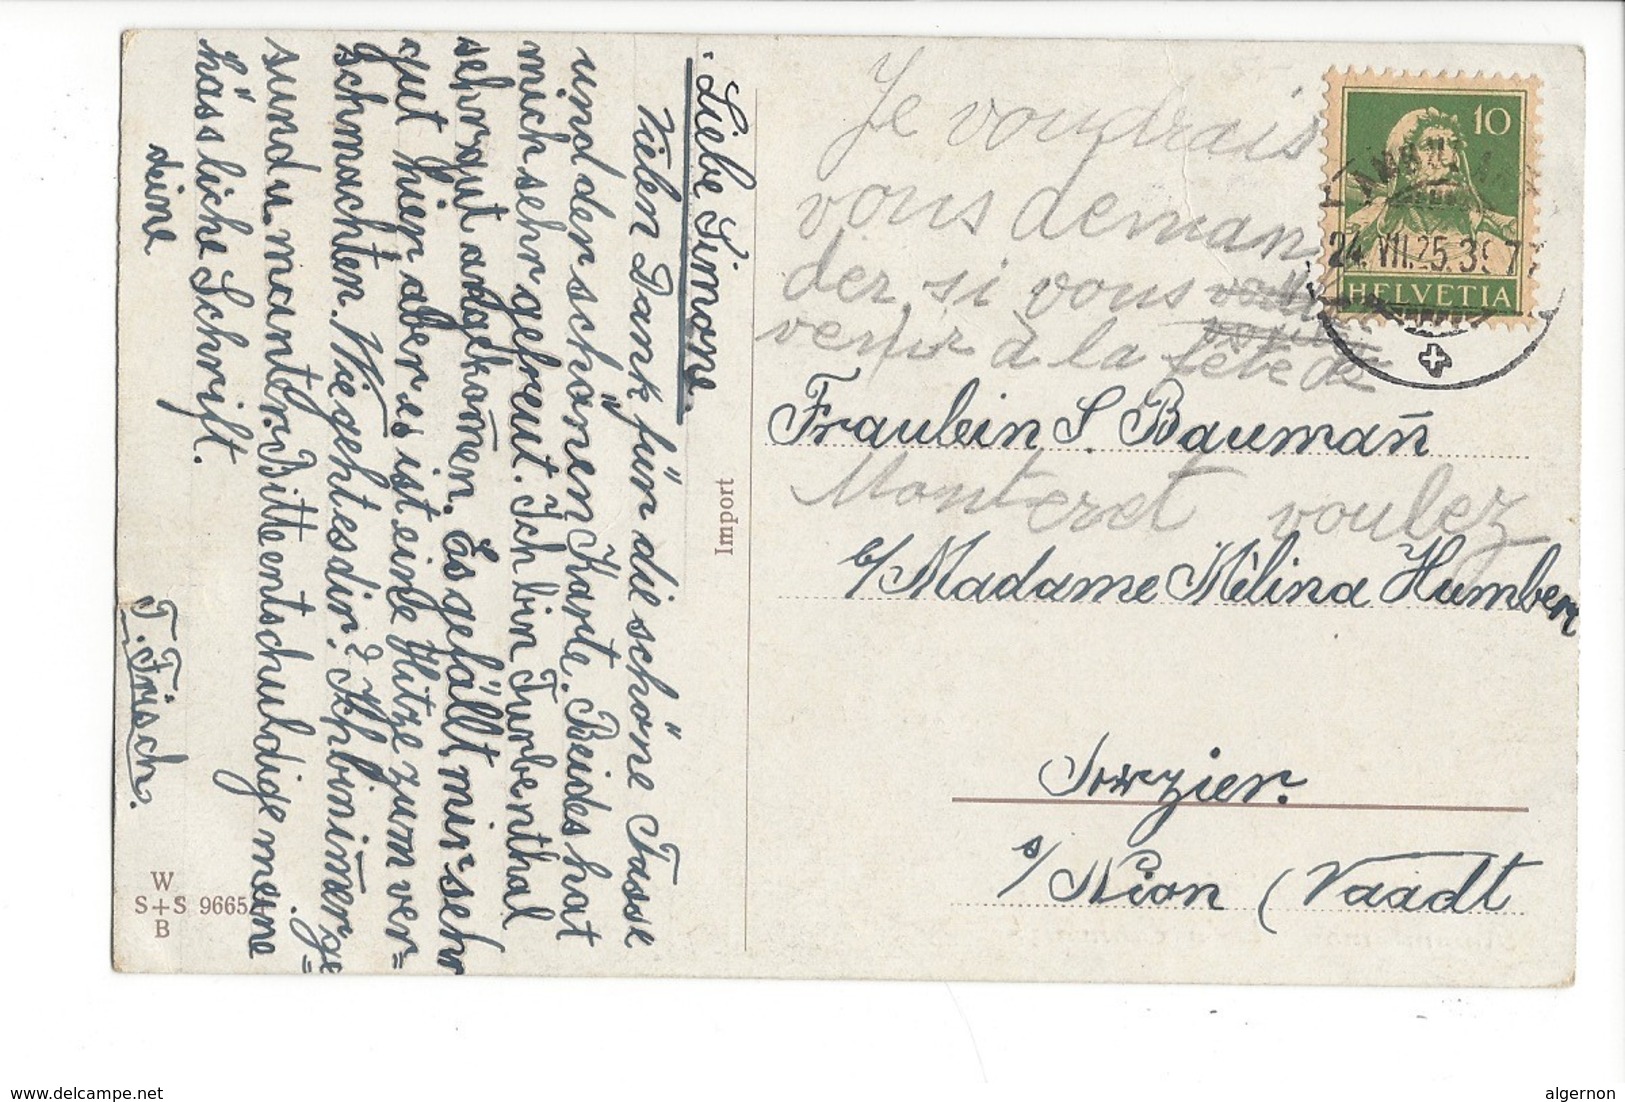 Liebe Simone.
Vielen Dank für die schöne Tasse
und der schönen Karte. Beides hat
mich sehr gefreut. Ich bin Turbenthal
sehr gut angekom̄en. Es gefällt mir sehr
gut hier aber es ist eine Hitze zum ver=
schmachten. Wie geht es dir? Ich bin im̄er ge=
sund u. munter. Bitte entschuldige meine
hässliche Schrift.
deine
T. Frisch.
W
S+S 9665
B
Import
Je voudrais
vous deman
der si vous
venir à la fête de
Monteret voulez
10
24.VII.25.
HELVETIA
Fraulein S Bauman̄
b/ Madame Mêlina Humber
Arzier.
s/ Nion (Vaadt
www.delcampe.net
algernon